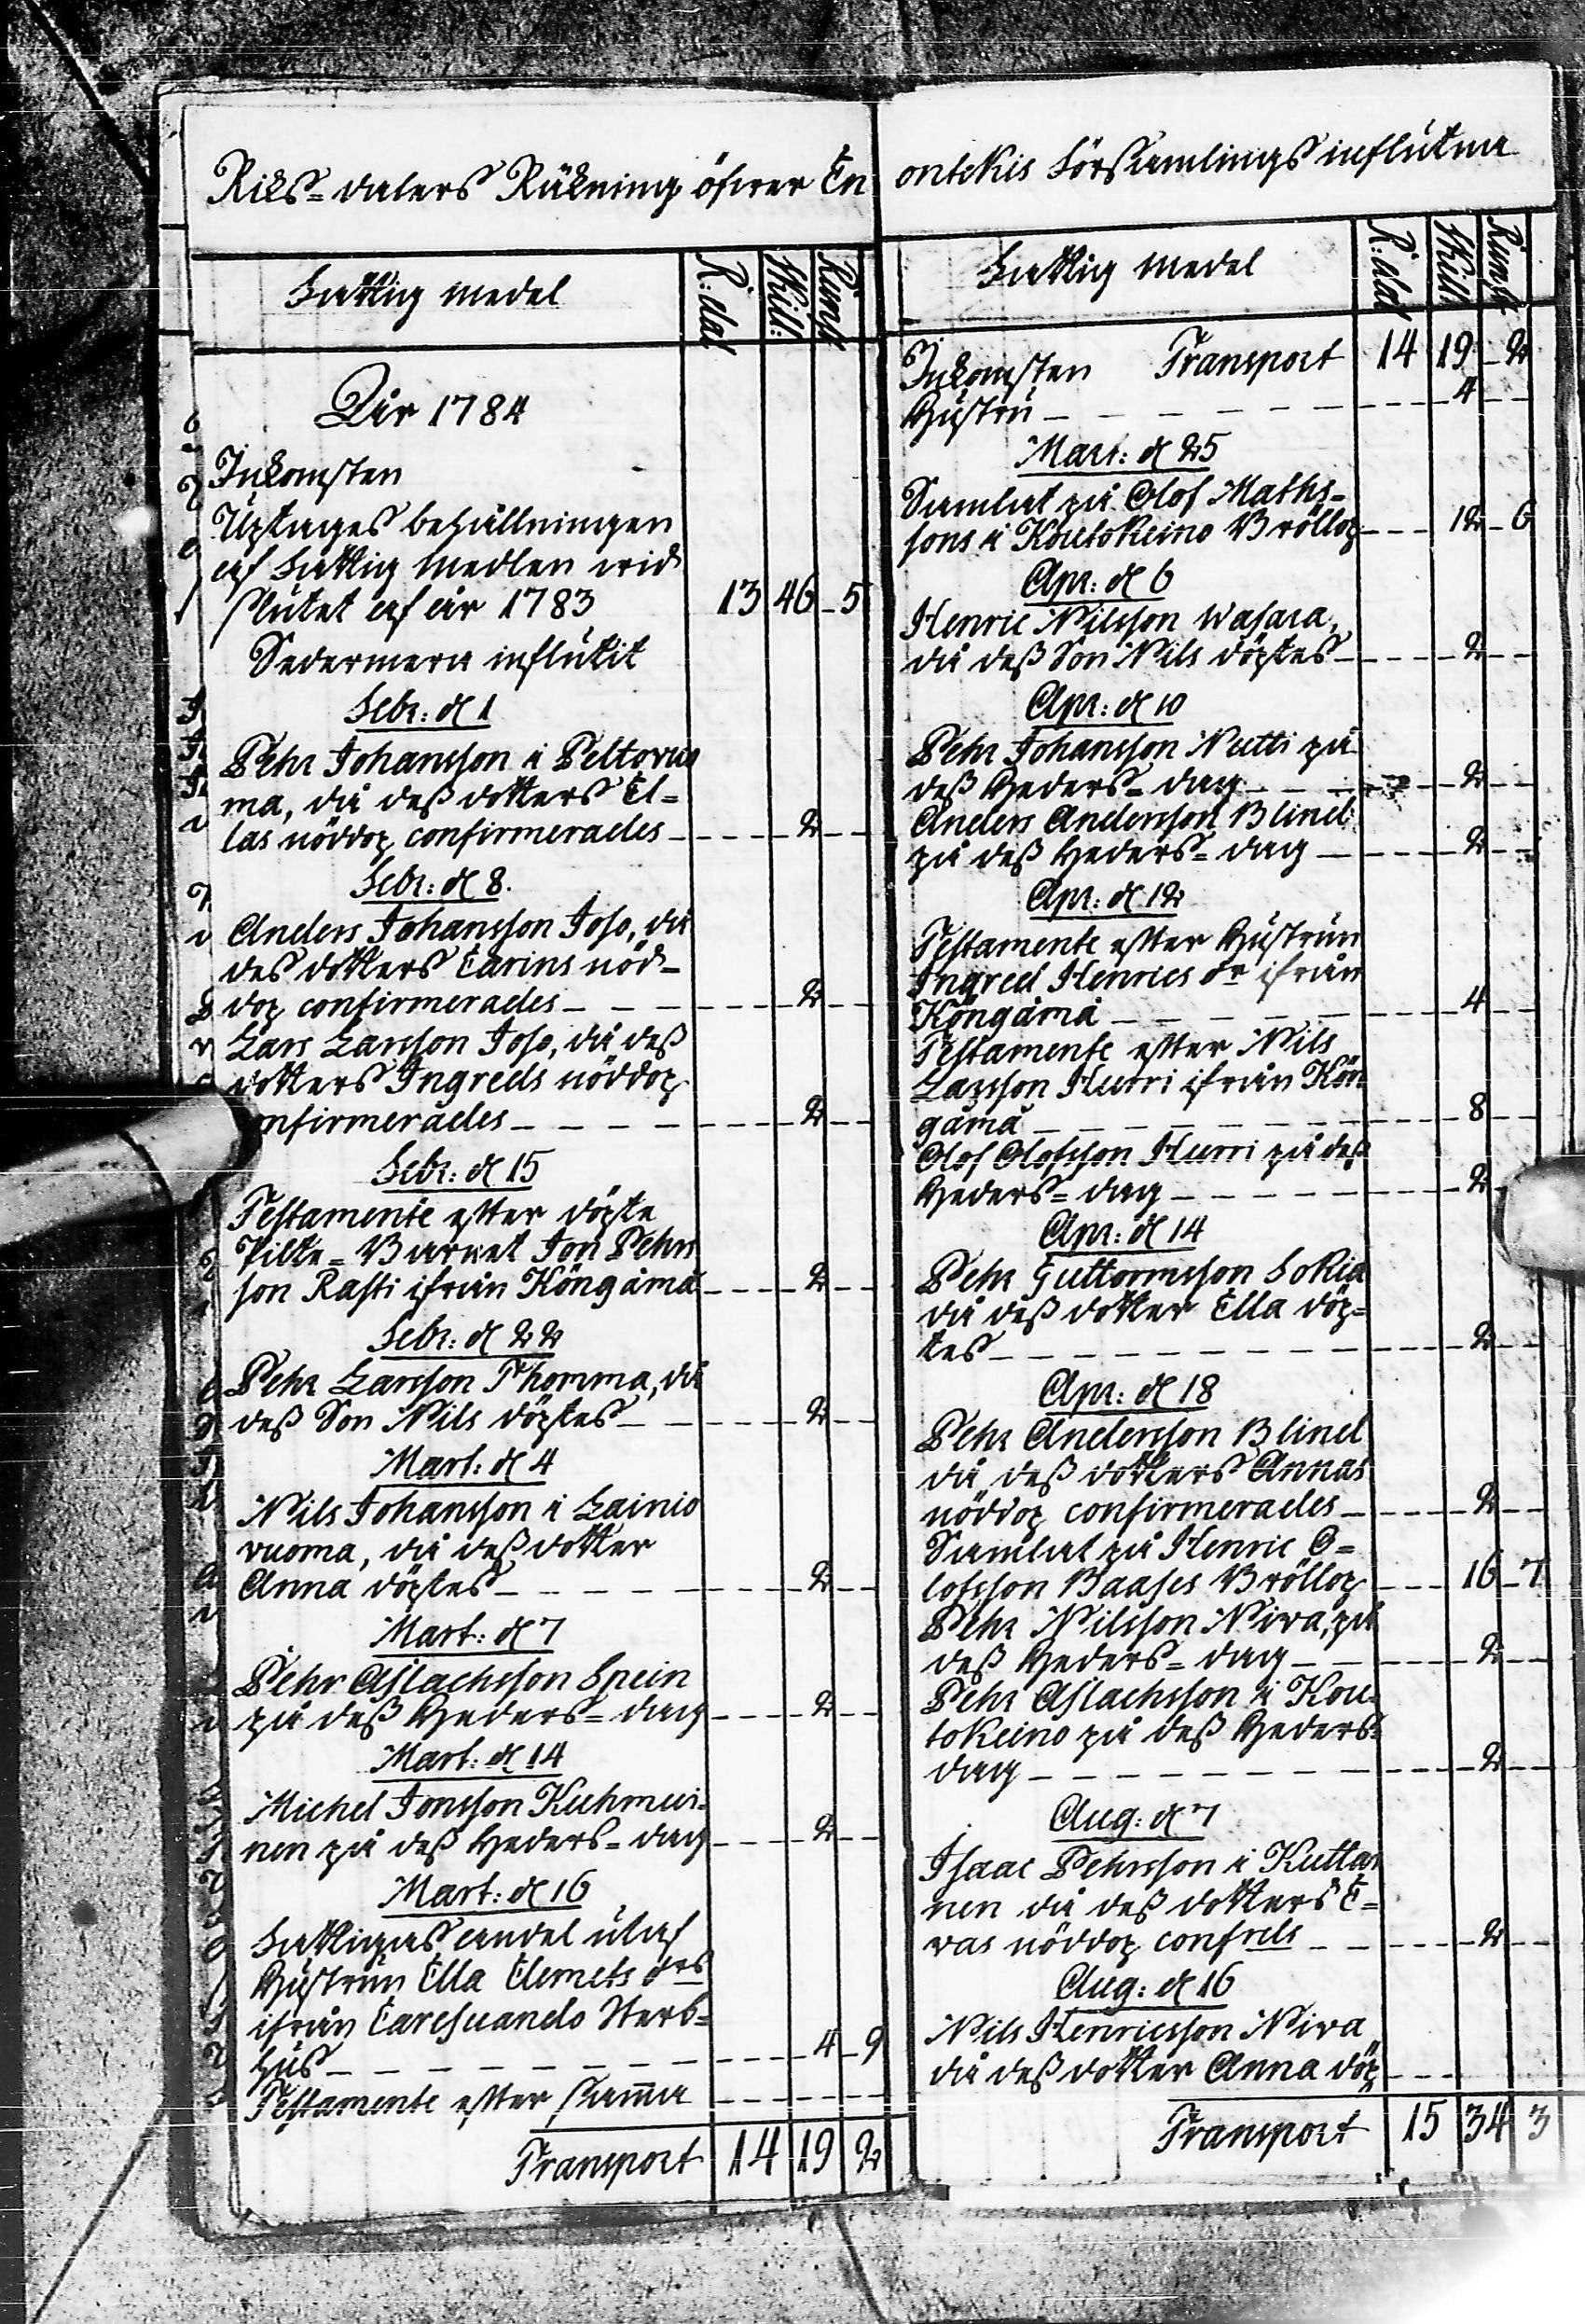 Riks-dalers Räkning öfwer En
Fattig medel R:dal Skill: Runst
Åhr 1784
Inkomsten
Uptages behållningen
af Fattig Medlen wid
slutet af år 1783 13 46 5
Sedermera influtit
Febr: d 1
Pehr Johansson i Peltovuo
ma, då deß dotters El=
las nöddop confirmerades 2
Febr: d 8.
Anders Johansson Joso, då
des dotters Carins nöd-
dop confirmerades 2
Lars Larsson Joso, då deß
dotters Ingreds nöddop
onfirmerades 2
Febr: d 15
Testamente efter döpte
Pilte-Barnet Jon Pehrs
son Rasti ifrån Köngämä 2
Febr: d 22
Pehr Larsson Thomma, då
deß Son Nils döptes 2
Mart: d 4
Nils Johansson i Lainio
vuoma, då deß dotter
Anna döptes 2
Mart: d 7
Pehr Aslachsson Spein
på deß Heders=dag 2
Mart: d 14
Michel Jonsson Kuhmui-
nen på deß Heders=dag 2
Mart: d 16
Fattigas andel utaf
Hustrun Ella Clemets drs
ifrån Caresuando Sterb=
hus 4 9
Testamente efter samma
Transport 14 19 2
ontekis Församlings influtna
Fattig medel R:dal Skill: Runst
Inkomsten Transport 14 19 2
Hustru 4
Mart: d 25
Samlat på Olof Maths-
sons i Koutokeino Bröllop 12 6
Apr: d 6
Henric Nilsson Wasara,
då deß Son Nils döptes 2
Apr: d 10
Pehr Johansson Nutti på
deß Heders=dag 2
Anders Andersson Blind
på deß Heders=dag 2
Apr: d 12
Testamente efter Hustrun
Ingred Henrics dr ifrån
Köngämä 4
Testamente efter Nils
Larsson Hurri ifrån Kön
gämä 8
Olof Olofsson Hurri på deß
Heders=dag 2
Apr: d 14
Pehr Guttormsson Sokia
då deß dotter Ella döp=
tes 2
Apr: d 18
Pehr Andersson Blind
då deß dotters Annas
nöddop confirmerades 2
Samlat på Henric O=
lofsson Baases Bröllop 16 7
Pehr Nilsson Niva, på
deß Heders=dag 2
Pehr Aslachsson i Kou-
tokeino på deß Heders-
dag 2
Aug: d 7
Isaac Pehrsson i Kutta
nen då deß dotters E=
vas nöddop confrds 2
Aug: d 16
Nils Henricsson Niva
då deß dotter Anna döp
Transport 15 34 3